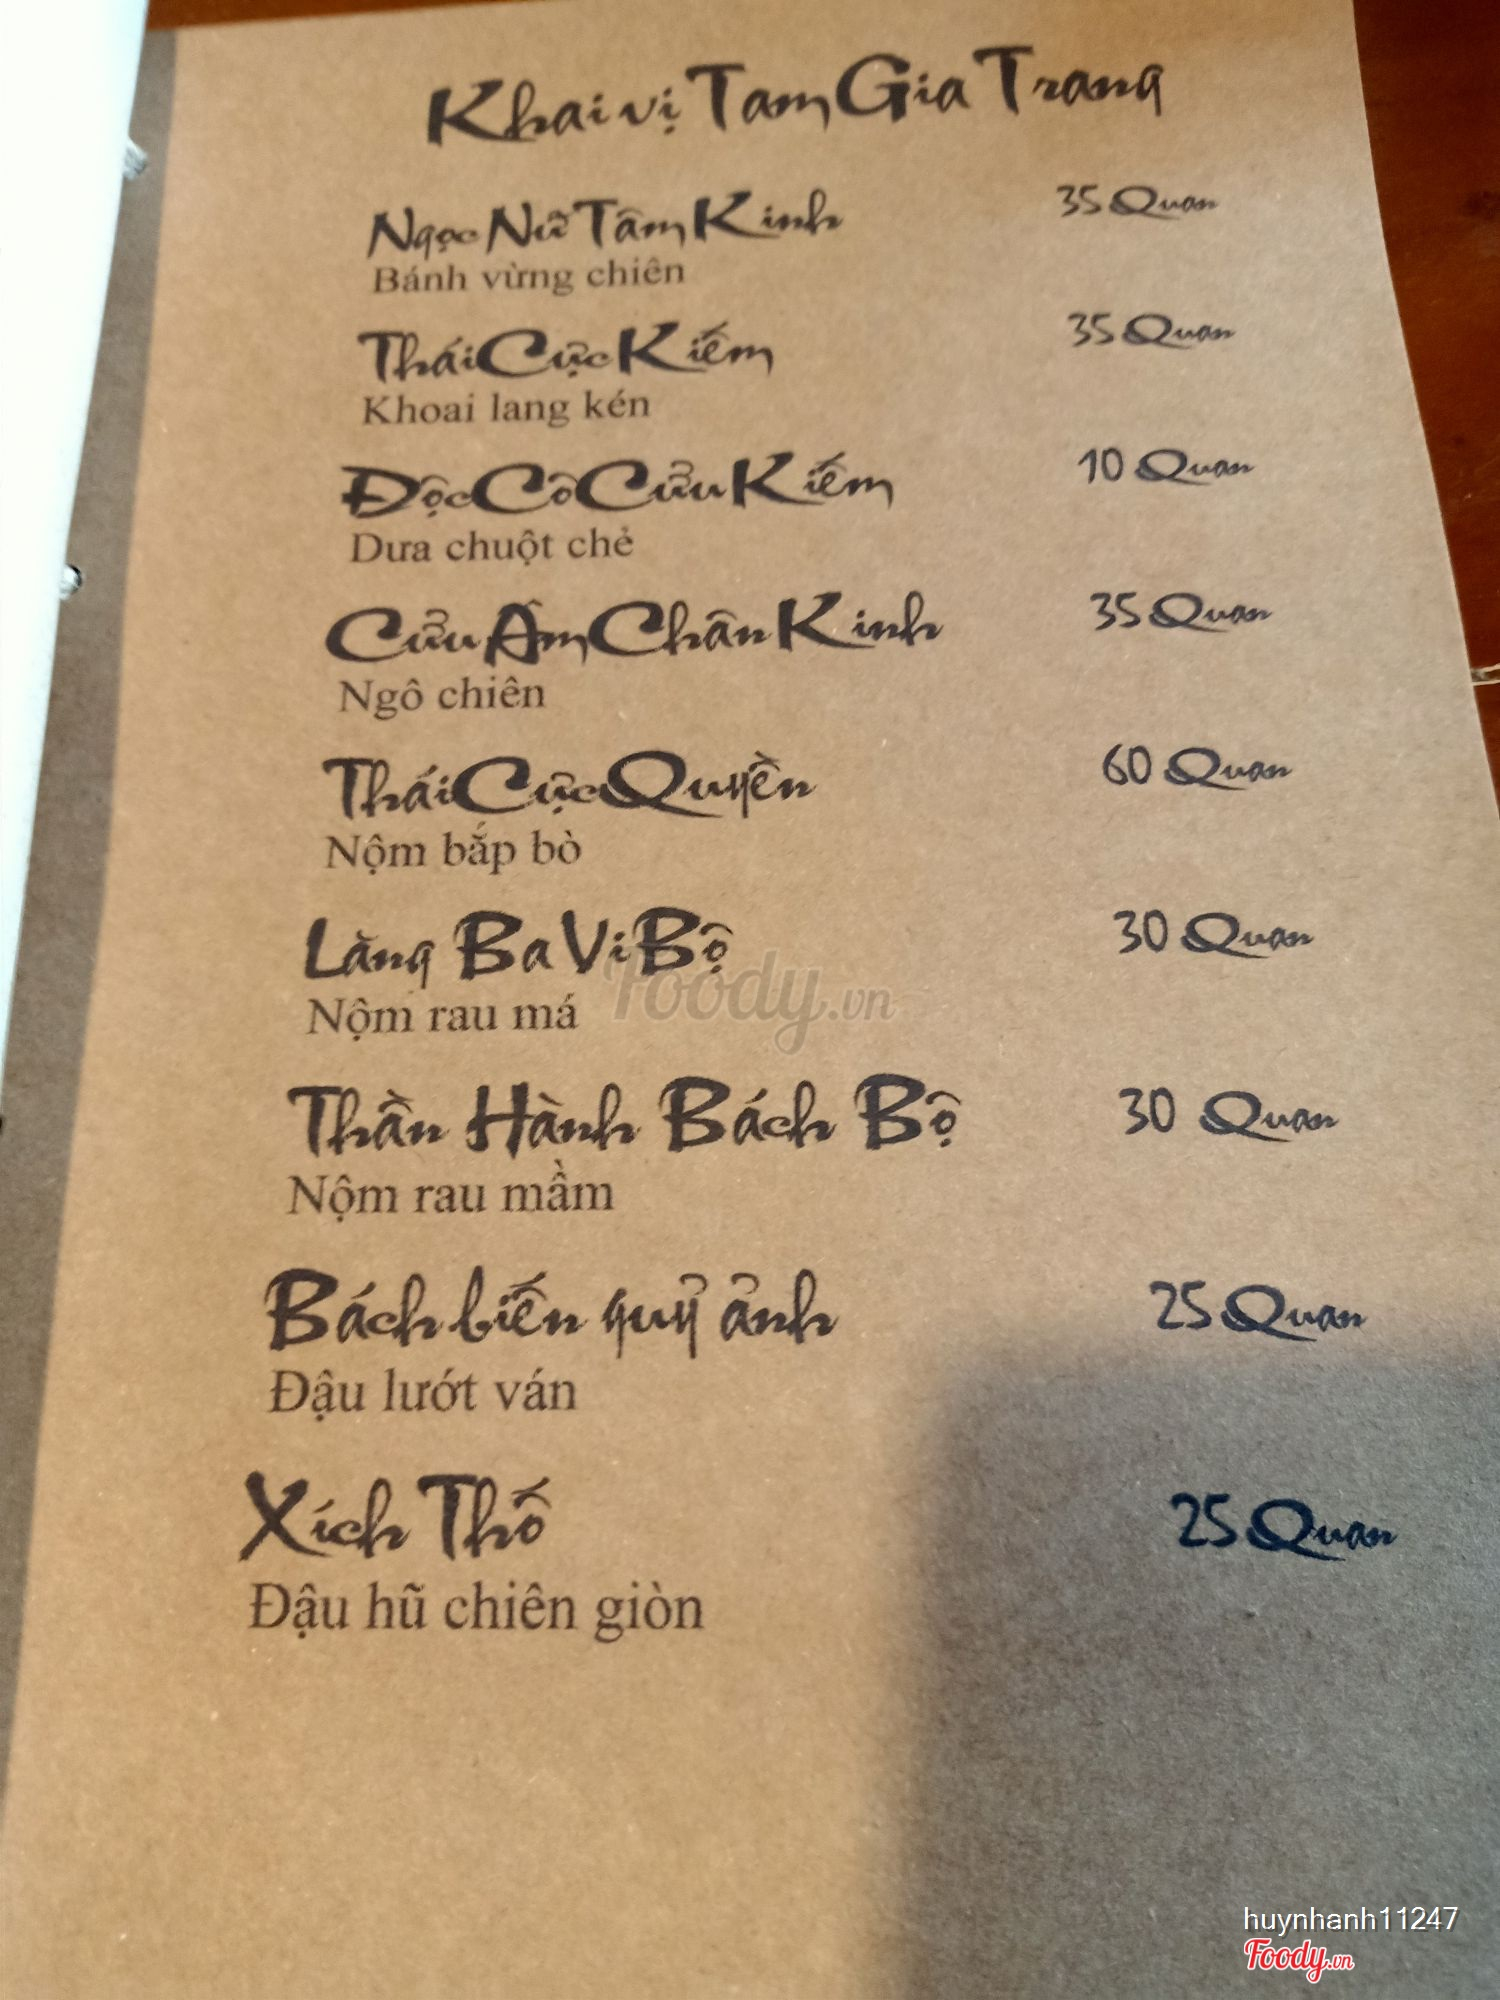 Khai vị Tam Gia Trang
Ngọc Nữ Tâm Kinh 35 Quan
Bánh vừng chiên
Thái Cực Kiếm 35 Quan
Khoai lang kén
Độc Cô Cửu Kiếm 10 Quan
Dưa chuột chẻ
Cửu Âm Chân Kinh 35 Quan
Ngô chiên
Thái Cực Quyền 60 Quan
Nộm bắp bò
Lăng Ba Vi Bộ 30 Quan
Nộm rau má
Foody.vn
Thần Hành Bách Bộ 30 Quan
Nộm rau mầm
Bách biến quỷ ảnh 25 Quan
Đậu lướt ván
Xích Thố 25 Quan
Đậu hũ chiên giòn
huynhanh11247
Foody.vn